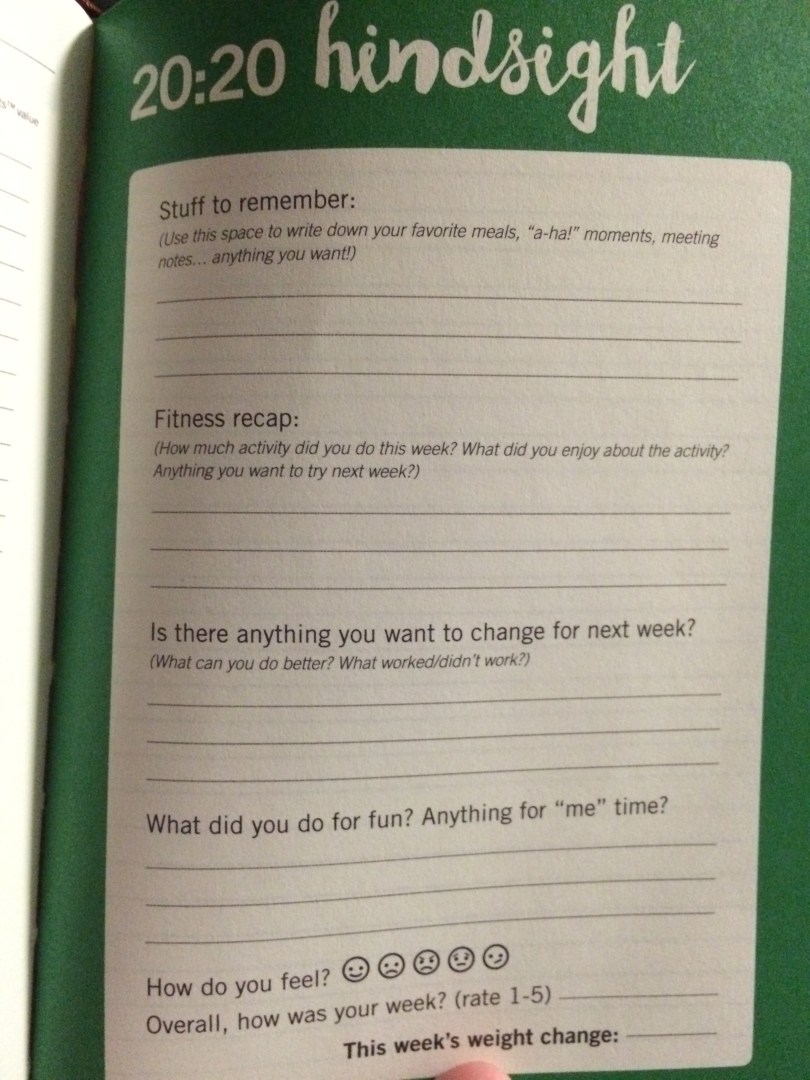 20:20 hindsight
s™ value
Stuff to remember:
(Use this space to write down your favorite meals, “a-ha!” moments, meeting
notes... anything you want!)
Fitness recap:
(How much activity did you do this week? What did you enjoy about the activity?
Anything you want to try next week?)
Is there anything you want to change for next week?
(What can you do better? What worked/didn't work?)
What did you do for fun? Anything for “me” time?
How do you feel?
Overall, how was your week? (rate 1-5)
This week's weight change: